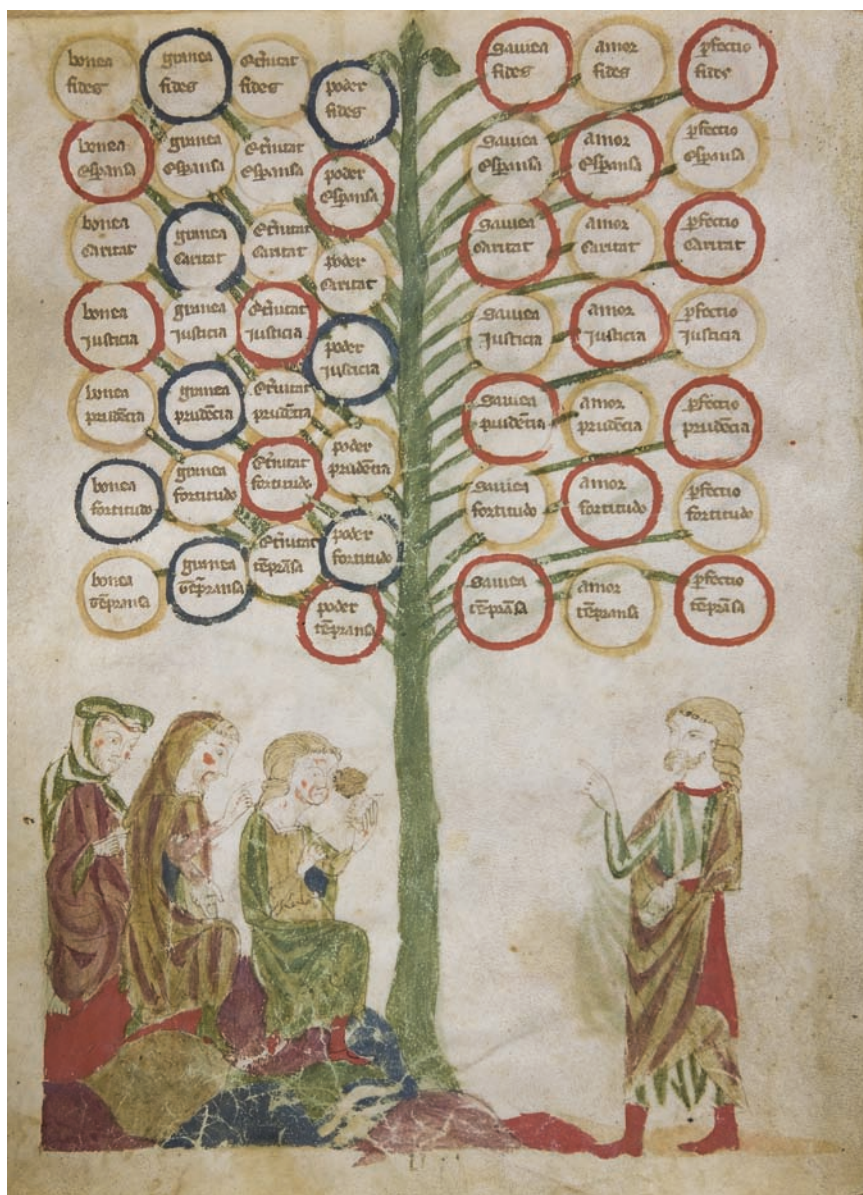 bonea
fides
granea
fides
et̃nitat
fides
poder
fides
saviea
fides
amor
fides
ꝑfectio
fides
bonea
esꝑansa
granea
esꝑansa
et̃nitat
esꝑansa
poder
esꝑansa
saviea
esꝑansa
amor
esꝑansa
ꝑfectio
esꝑansa
bonea
caritat
granea
caritat
et̃nitat
caritat
poder
caritat
saviea
caritat
amor
caritat
ꝑfectio
caritat
bonea
justicia
granea
justicia
et̃nitat
justicia
poder
justicia
saviea
justicia
amor
justicia
ꝑfectio
justicia
bonea
prudẽcia
granea
prudẽcia
et̃nitat
prudẽcia
poder
prudẽcia
saviea
prudẽcia
amor
prudẽcia
ꝑfectio
prudẽcia
bonea
fortitudo
granea
fortitudo
et̃nitat
fortitudo
poder
fortitudo
saviea
fortitudo
amor
fortitudo
ꝑfectio
fortitudo
bonea
tẽpransa
granea
tẽpransa
et̃nitat
tẽprãsa
poder
tẽpransa
saviea
tẽprãsa
amor
tẽpransa
ꝑfectio
tẽprãsa